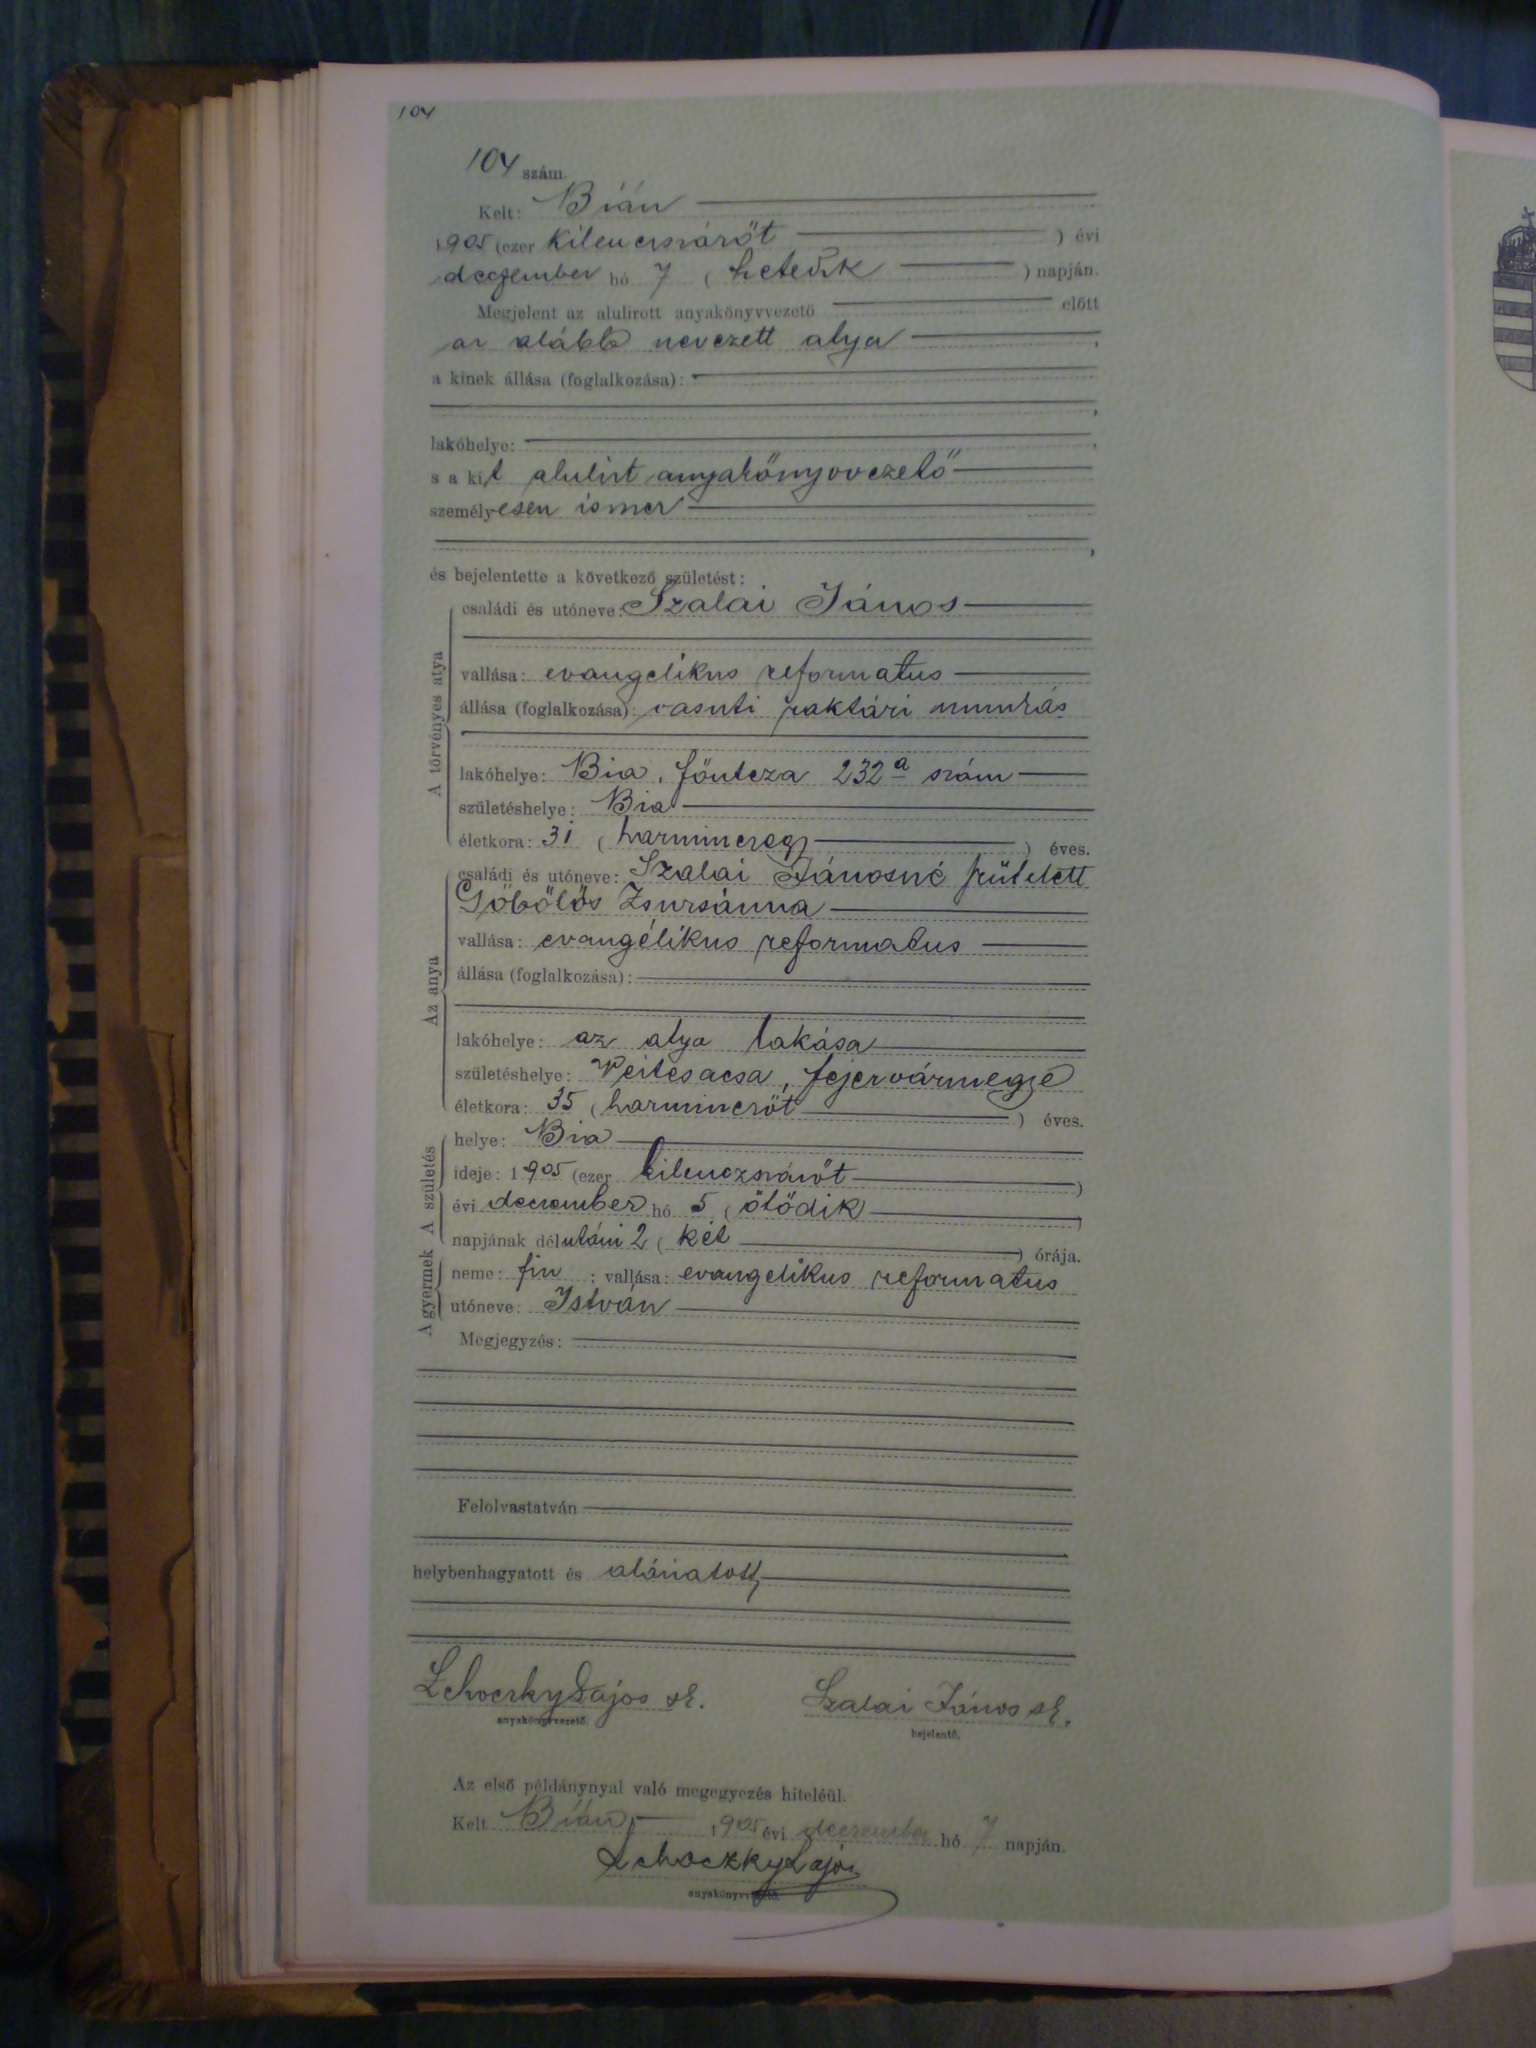 104
104 szám.
Kelt: Bián
1905 (ezer kilenczszázöt ) évi
deczember hó 7 ( hetedik ) napján.
Megjelent az alulirott anyakönyvvezető előtt
az alább nevezett atya ,
a kinek állása (foglalkozása):
,
lakóhelye: ,
s a kit alulírt anyakönyvvezető
személyesen ismer
,
és bejelentette a következő születést:
A törvényes atya
családi és utóneve: Szalai János
vallása: evangelikus reformatus
állása (foglalkozása): vasuti raktári munkás
lakóhelye: Bia, főutcza 232a szám
születéshelye: Bia
életkora: 31 ( harminczegy ) éves.
Az anya
családi és utóneve: Szalai Jánosné született
Göbölös Zsuzsánna
vallása: evangélikus reformatus
állása (foglalkozása):
lakóhelye: az atya lakása
születéshelye: acsa, fejérvármegye
életkora: 35 ( harminczöt ) éves.
A születés
helye: Bia
ideje: 1905 (ezer kilenczszázöt )
évi deczember hó 5 ( ötödik )
napjának délutáni 2 ( két ) órája.
A gyermek
neme: fiu ; vallása: evangelikus reformatus
utóneve: István
Megjegyzés:
Felolvastatván
helybenhagyatott és aláíratott,
Lehoczky Lajos sk. Szalai János sk.
anyakönyvvezető. bejelentő.
Az első példánynyal való megegyezés hiteléül.
Kelt Bián, 1905 évi deczember hó 7 napján.
Lehoczky Lajos
anyakönyvvezető.